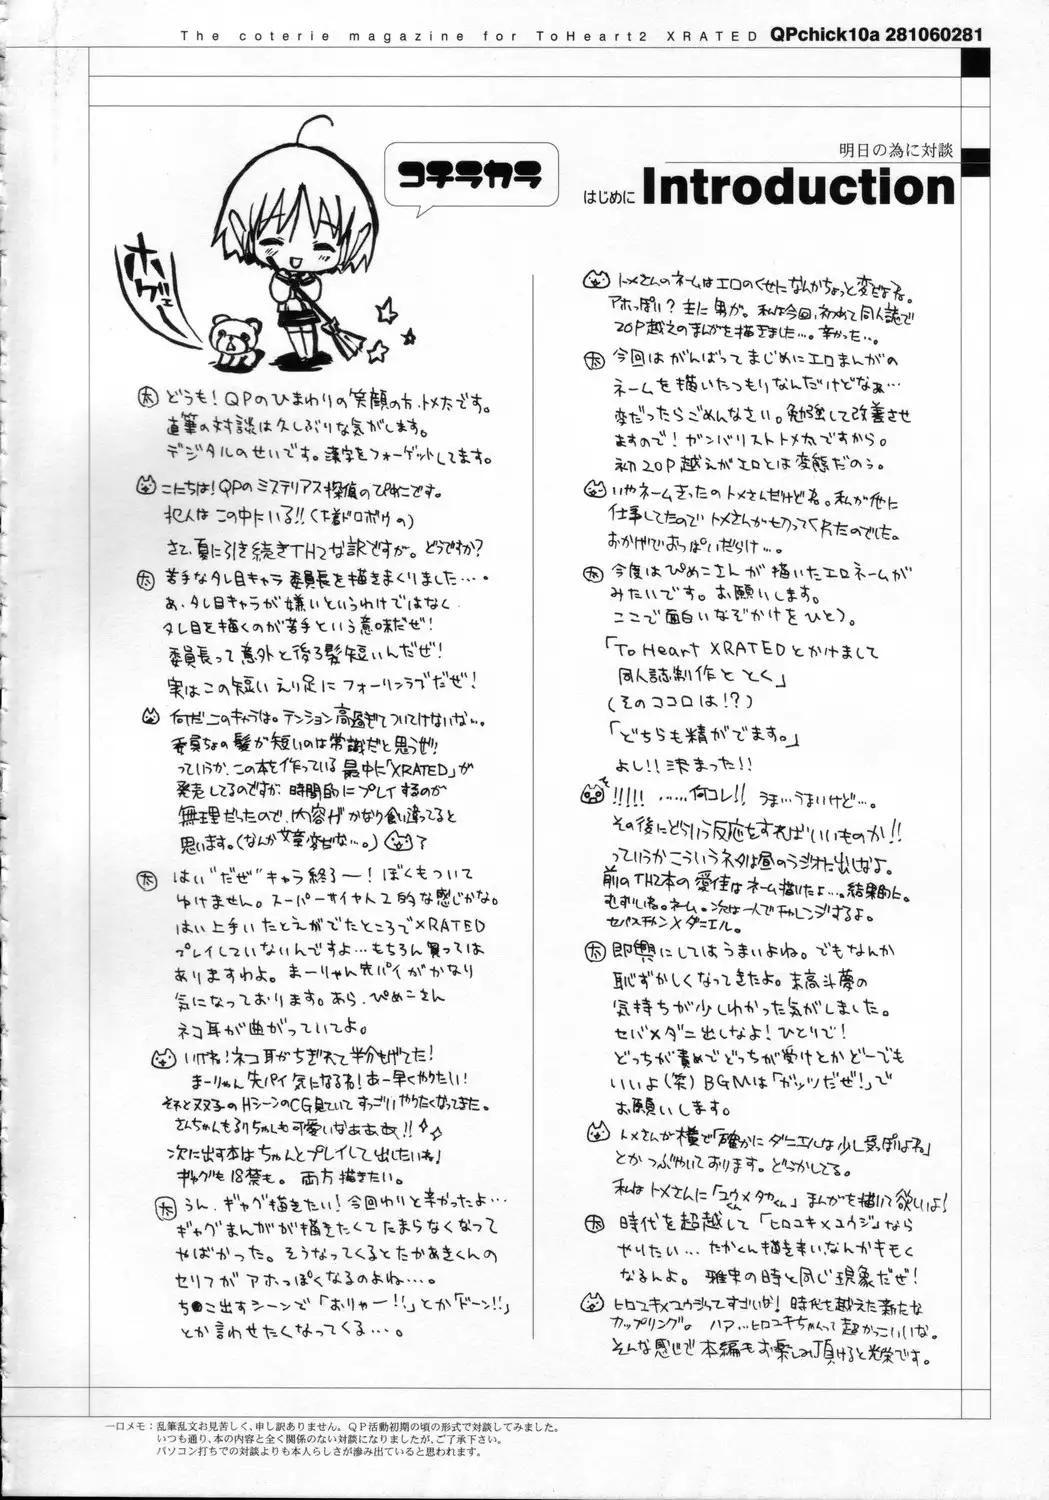 The coterie magazine for ToHeart2 XRATED QPchick10a 281060281
明日の為に対談
はじめに Introduction
コチラカラ
ホゲェー
太 どうも！QPのひまわりの笑顔の方、トメ太です。
直筆の対談は久しぶりな気がします。
デジタルのせいです。漢字をフォーゲットしてます。
こにちは！QPのミステリアス探偵のぴめこです。
犯人はこの中にいる!!（下着ドロボウの）
さて、夏に引き続きTH2な訳ですが。どうですか？
太 苦手なタレ目キャラ委員長を描きまくりました・・・・
あ、タレ目キャラが嫌いというわけではなく
タレ目を描くのが苦手という意味だぜ！
委員長って意外と後ろ髪短いんだぜ！
実はこの短いえり足にフォーリンラブだぜ！
何だこのキャラは。テンション高過ぎてついてけないな・・。
委員ちょの髪が短いのは常識だと思うぜ!
っていうか、この本を作っている最中に「XRATED」が
発売してるのですが時間的にプレイするのが
無理だったので、内容がかなり食い違ってると
思います。（なんか文章変だな・・・。）
太 はい"だぜ"キャラ終了ー！ぼくもついて
ゆけません。スーパーサイヤ人2的な感じかな。
はい上手いたとえがでたところでXRATED
プレイしていないんですよ…もちろん買っては
ありますわよ。まーりゃん先パイがかなり
気になっております。あら、ぴめこさん
ネコ耳が曲がっていてよ。
いけね！ネコ耳がちぎれて半分もげてた！
まーりゃん先パイ気になるね！あー早くやりたい！
それと双子のHシーンのCG見ていてすっごいやりたくなってきた。
さんちゃんもるりちゃんも可愛いなあああ!!
次に出す本はちゃんとプレイして出したいね！
ギャグも18禁も。両方描きたい。
太 うん、ギャグ描きたい！今回わりと辛かったよ…
ギャグまんがが描きたくてたまらなくなって
やばかった。そうなってくるとたかあきくんの
セリフがアホっぽくなるのよね…。
ち●こ出すシーンで「おりゃー!!」とか「ドーン!!」
とか言わせたくなってくる…。
トメさんのネームはエロのくせになんかちょっと変だよね。
アホっぽい？主に男が。私は今回、初めて同人誌で
20P越えのまんがを描きました…。辛かった…。
太 今回はがんばってまじめにエロまんがの
ネームを描いたつもりなんだけどなぁ…
変だったらごめんなさい。勉強して改善させ
ますので！ガンバリストトメ太ですから。
初20P越えがエロとは変態だのぅ。
いやネームきったのトメさんだけどね。私が他に
仕事してたのでトメさんが切ってくれたのでした。
おかげでおっぱいだらけ…。
太 今度はぴめこさんが描いたエロネームが
みたいです。お願いします。
ここで面白いなぞかけをひとつ。
「To Heart XRATEDとかけまして
同人誌制作ととく」
（そのココロは!?）
「どちらも精がでます。」
よし!!決まった!!
!!!!! ……何コレ!! うま…うまいけど…。
その後にどういう反応をすればいいものか!!
っていうかこういうネタは昼のラジオに出しなよ。
前のTH2本の愛佳はネーム描いたよ…。結果的に。
むずいね。ネーム。次は一人でチャレンジするよ。
セバスチャン×ダニエル。
太 即興にしてはうまいよね。でもなんか
恥ずかしくなってきたよ。末高斗夢の
気持ちが少しわかった気がしました。
セバ×ダニ出しなよ！ひとりで！
どっちが責めでどっちが受けとかどーでも
いいよ（笑）BGMは「ガッツだぜ！」で
お願いします。
トメさんが横で「確かにダニエルは少し受っぽいよね」
とかつぶやいております。どうかしてる。
私はトメさんに「ユウくん×タカくん」まんがを描いて欲しいよ！
太 時代を超越して「ヒロユキ×ユウジ」なら
やりたい…たかくん描き辛い、なんかキモく
なるんよ。雅史の時と同じ現象だぜ！
ヒロユキ×ユウジってすごいな！時代を越えた新たな
カップリング。ハア…ヒロユキちゃんって超かっこいいな。
そんな感じで本編もお楽しみ頂けると光栄です。
一口メモ：乱筆乱文お見苦しく、申し訳ありません。QP活動初期の頃の形式で対談してみました。
いつも通り、本の内容と全く関係のない対談になりましたが、ご了承下さい。
パソコン打ちでの対談よりも本人らしさが滲み出ていると思われます。